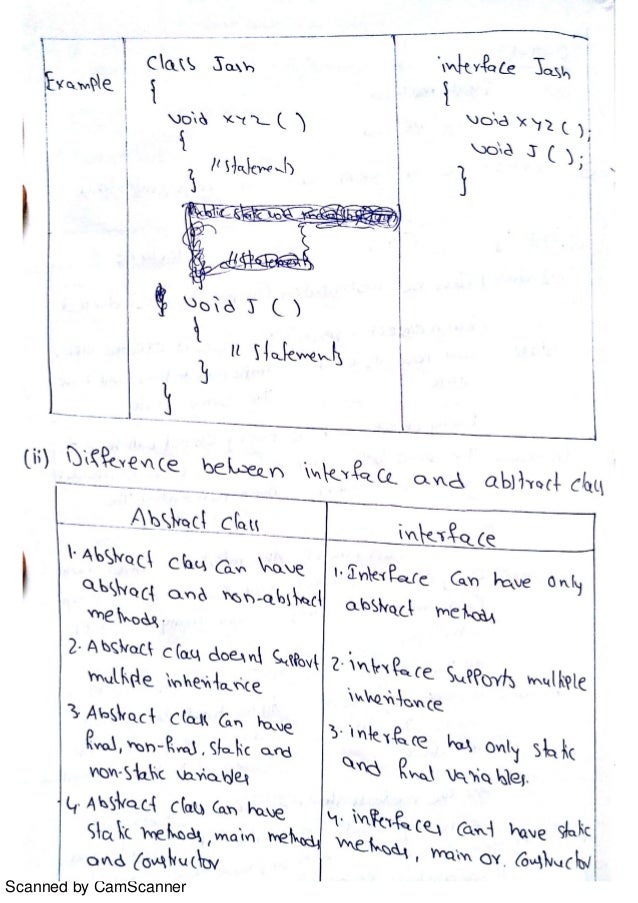 Example
class Jash
{
void xyz ( )
{
// statements
}
void J ( )
{
// statements
}
}
interface Jash
{
void xyz ( );
void J ( );
}
(ii) Difference between interface and abstract class
Abstract class
1. Abstract class can have
abstract and non-abstract
methods.
2. Abstract class doesnt support
multiple inheritance
3. Abstract class can have
final, non-final, static and
non-static variables
4. Abstract class can have
static methods, main methods
and constructor
interface
1. Interface can have only
abstract methods
2. interface supports multiple
inheritance
3. interface has only static
and final variables.
4. interfaces cant have static
methods, main or. constructor
Scanned by CamScanner